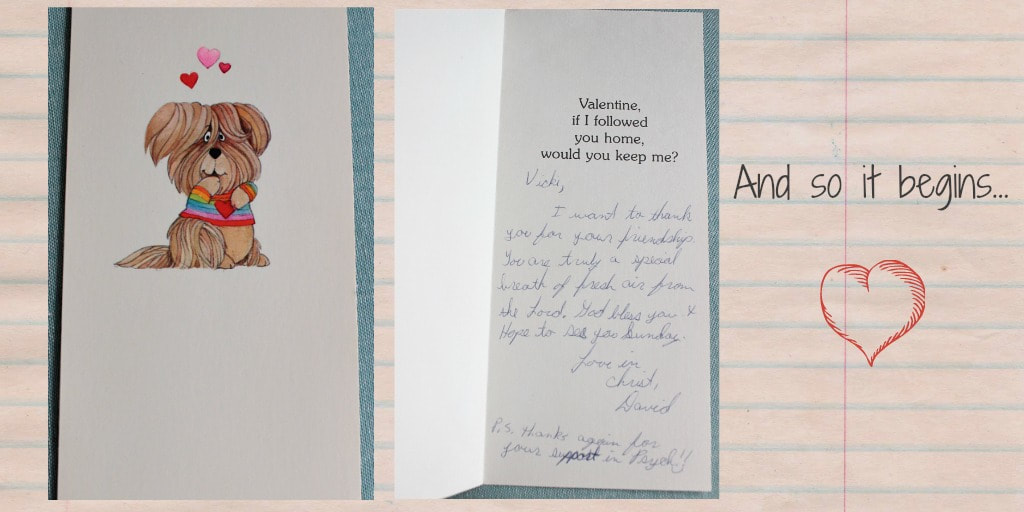 Valentine,
if I followed
you home,
would you keep me?
Vicki,
I want to thank
you for your friendship.
You are truly a special
breath of fresh air from
the Lord. God bless you &
Hope to see you Sunday.
Love in
Christ,
David
P.S. thanks again for
your support in Psych!!
And so it begins...